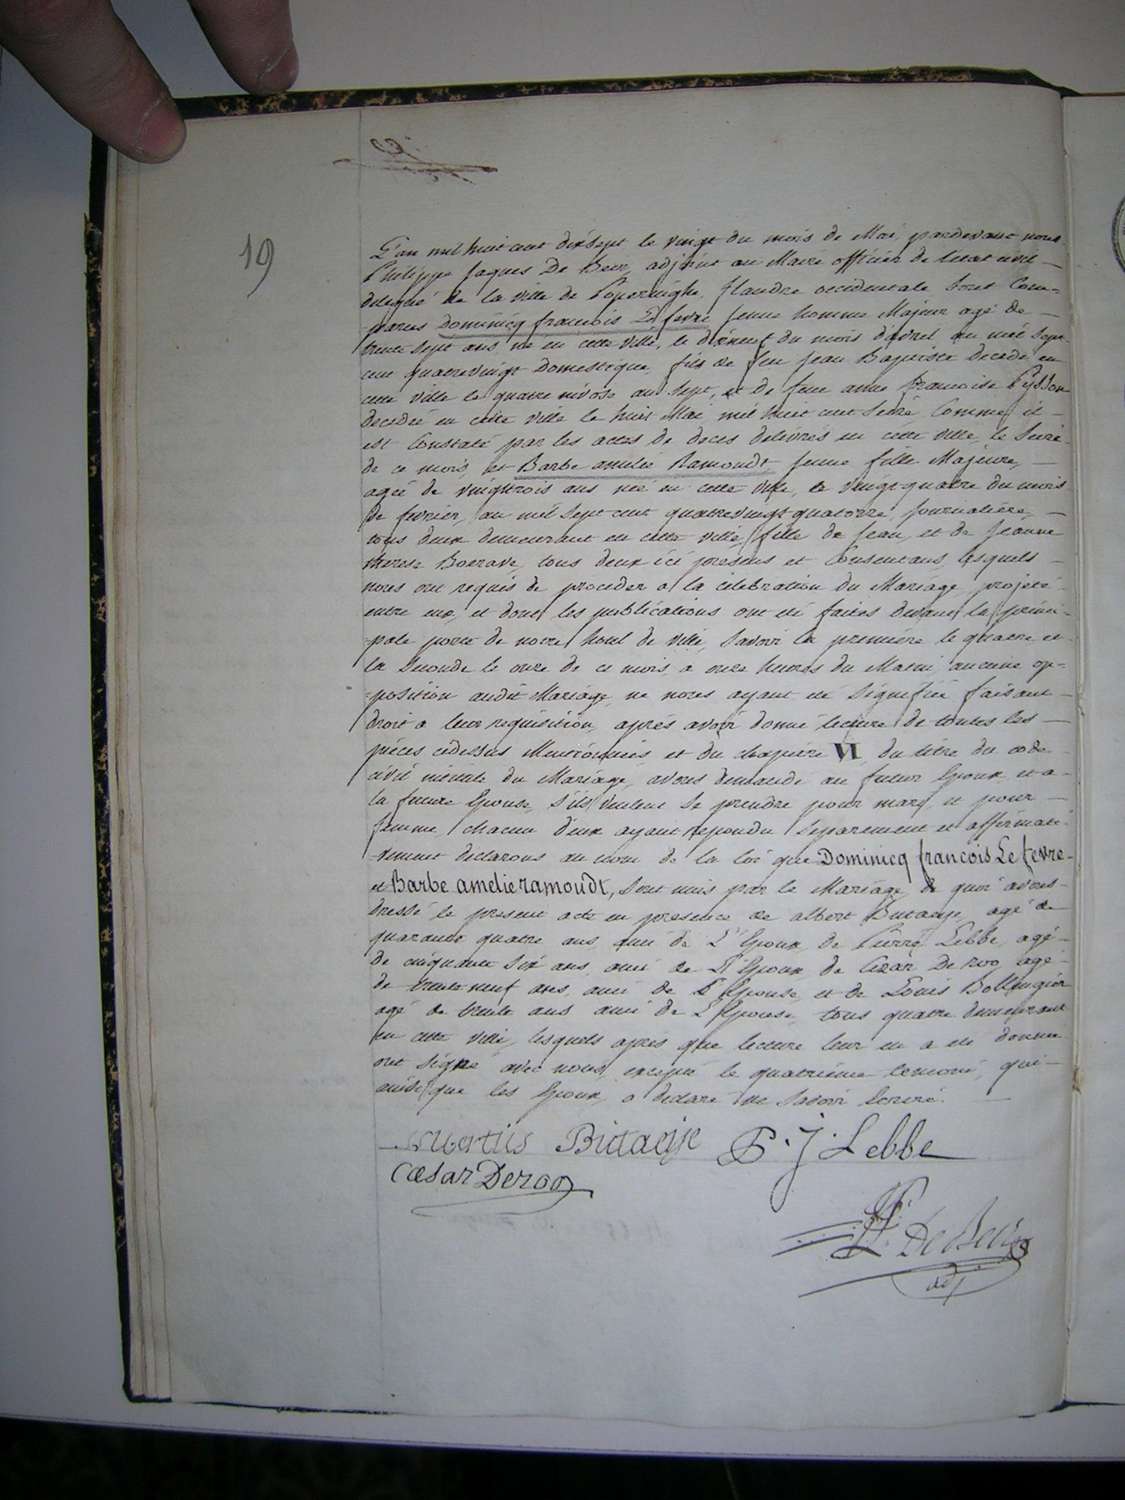 19
L'an mil huit cent dix sept le vingt du mois de Mai, pardevant nous
Philippe Jaques De Beir, adjoint au Maire officier de letat civil
delegué de la ville de Poperinghe, flandre occidentale sont Com-
parus Dominicq francois Lefevre jeune homme Majeur agé de
trente sept ans né en cette ville, le dixneuf du mois d'avril an mil sept
cent quatrevingt Domestique, fils de feu Jean Baptiste decedé en
cette ville le quatre nivose an sept, et de feue anne francoise
decedée en cette ville le huit Mai mil huit cent seize Comme il
est Constaté par les actes de deces delivrés en cette ville le seize
de ce mois, et Barbe amelie Ramoudt jeune fille Majeure,
agée de vingttrois ans née en cette ville, le vingt quatre du mois
de fevrier, an mil sept cent quatrevingt quatorze, journaliere,
tous deux demeurant en cette ville, fille de Jean, et de Jeanne
therese Boerave, tous deux ici presens et Consentans, lesquels
nous ont requis de proceder a la celebration du Mariage projeté
entre eux, et dont les publications ont été faites devant la princi-
pale porte de notre hotel de ville, Savoir la premiere le quatre et
la Seconde le onze de ce mois, a onze heures du Matin, aucune op-
position audit Mariage ne nous ayant été signifiée faisant
droit a leur requisition, après avoir donné lecture de toutes les
pièces cidessus Mentionnées et du chapitre VI du titre du code
civil intitulé du Mariage, avons demandé au futur Epoux et a
la future Epouse, s'ils veulent se prendre pour mari et pour
femme, chacun d'eux ayant repondu separement et affirmati-
vement declarons au nom de la loi que Dominicq francois Lefevre
et Barbe amelie ramoudt, sont unis par le Mariage de quoi avons
dressé le present acte en presence de albert Butaeije, agé de
quarante quatre ans, ami de L'Epoux, de Pierre Lebbe, agé
de cinquante six ans, ami de L'Epoux de Cesar De roo, agé
de trente neuf ans, ami de L'Epouse, et de Louis
agé de trente ans ami de L'Epouse, tous quatre demeurant
en cette ville, lesquels apres que lecture leur en a été donnée
ont signé avec nous, excepté le quatrième temoin, qui
ainsi que les Epoux, a declaré ne savoir Ecrire.
P. J. Lebbe
Cæsar Deroo
De Beir
adj